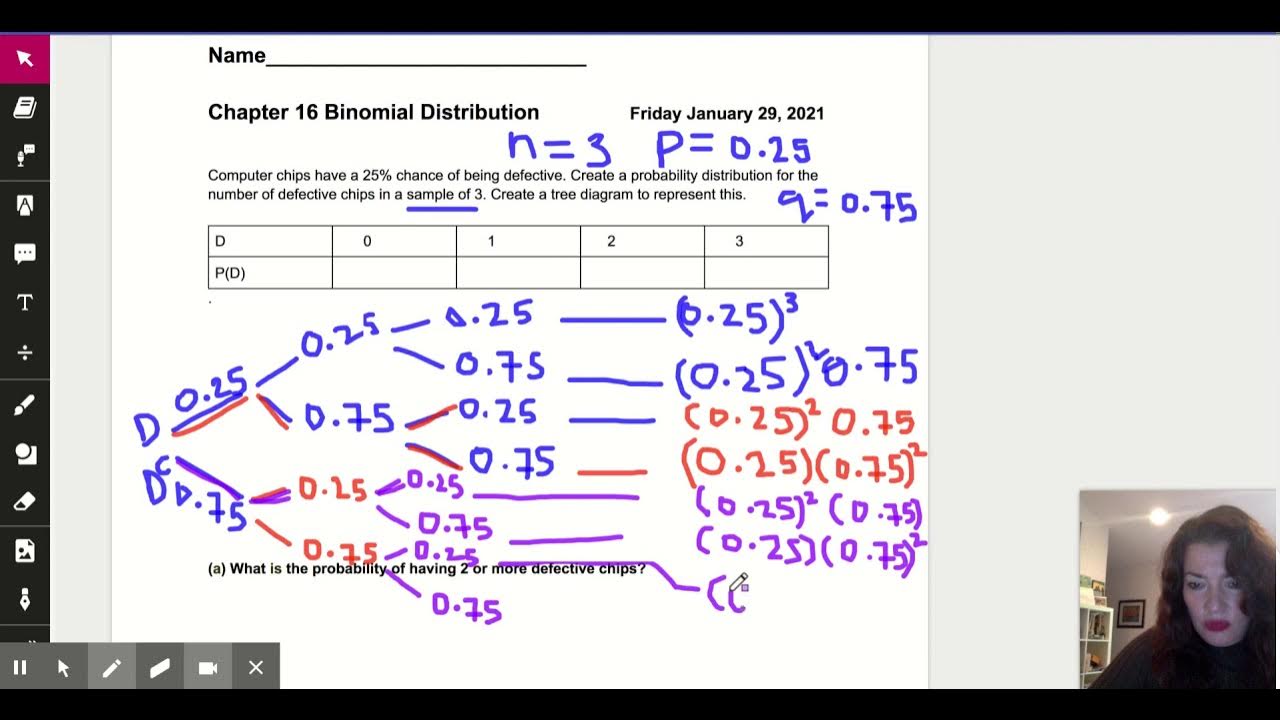 Name
Chapter 16 Binomial Distribution Friday January 29, 2021
n=3 p=0.25
Computer chips have a 25% chance of being defective. Create a probability distribution for the
number of defective chips in a sample of 3. Create a tree diagram to represent this.
q=0.75
D 0 1 2 3
P(D)
0.25 0.25 0.25 (0.25)³
0.75 (0.25)²0.75
D 0.75 0.25 (0.25)² 0.75
0.75 (0.25)(0.75)²
Dᶜ 0.75 0.25 0.25 (0.25)² (0.75)
0.75 (0.25)(0.75)²
0.75 0.25
(a) What is the probability of having 2 or more defective chips?
0.75 ((